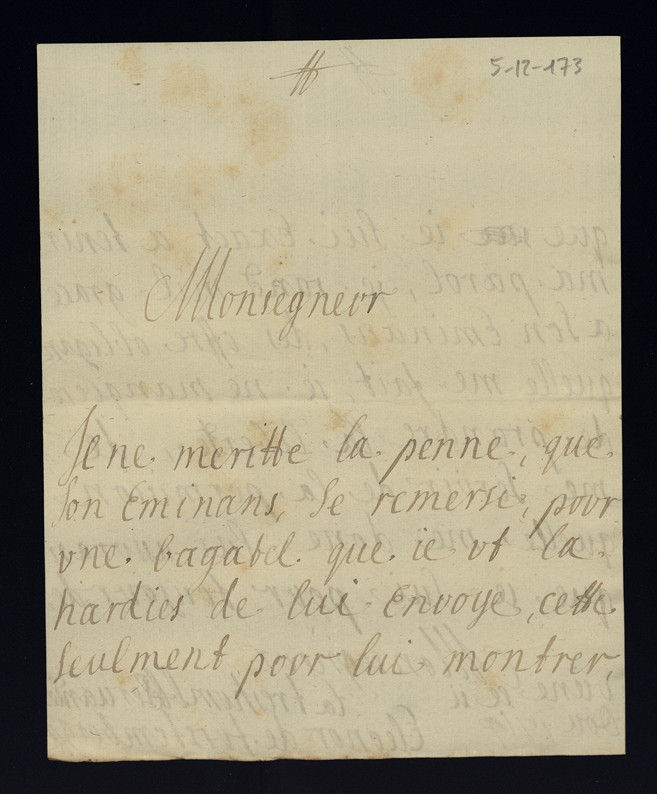 5-12-173
Monsegneur
Je ne meritte la penne, que
son eminans, se remersi, pour
vne bagatel que ie vt la
hardies de lui envoye, cette
seulment pour lui montrer,